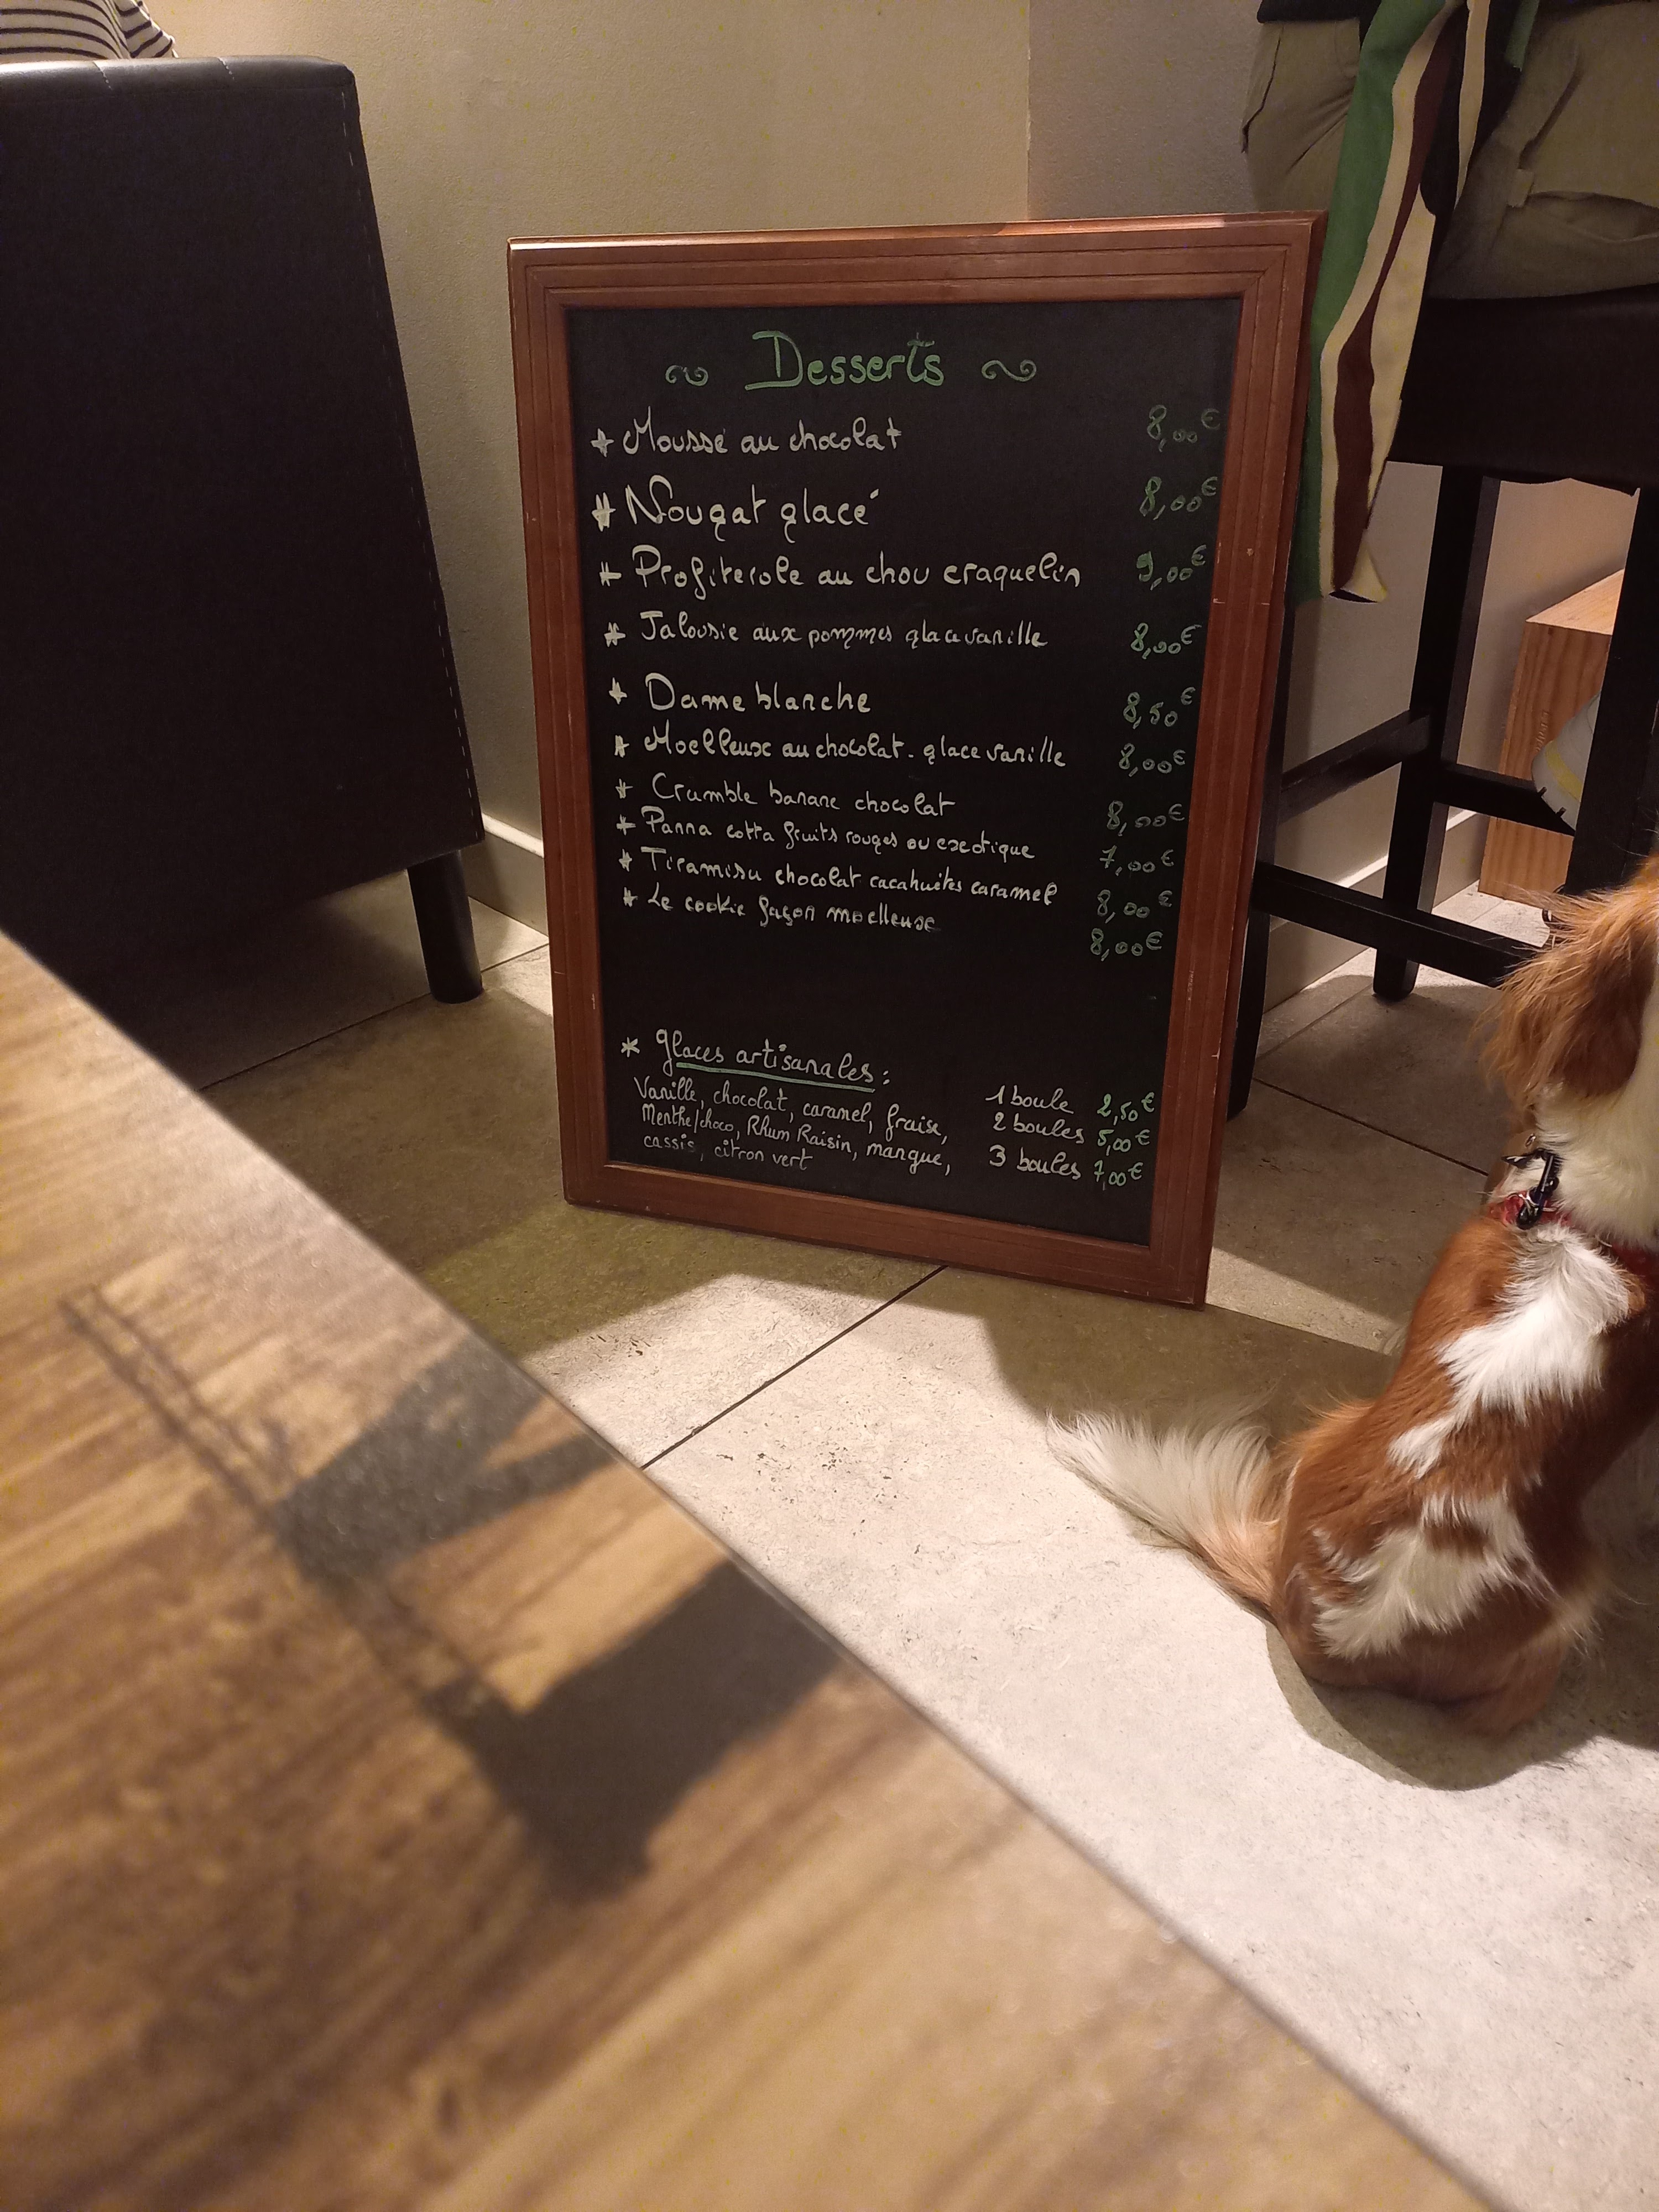 Desserts
* Mousse au chocolat 8,00€
* Nougat glacé 8,00€
* Profiterole au chou craquelin 9,00€
* Jalousie aux pommes glace vanille 8,00€
* Dame blanche 8,50€
* Moelleux au chocolat - glace vanille 8,00€
* Crumble banane chocolat 8,00€
* Panna cotta fruits rouges ou exotique 7,00€
* Tiramisu chocolat cacahuètes caramel 8,00€
* Le cookie façon moelleuse 8,00€
* Glaces artisanales :
Vanille, chocolat, caramel, fraise, 1 boule 2,50€
Menthe/choco, Rhum Raisin, mangue, 2 boules 5,00€
cassis, citron vert 3 boules 7,00€